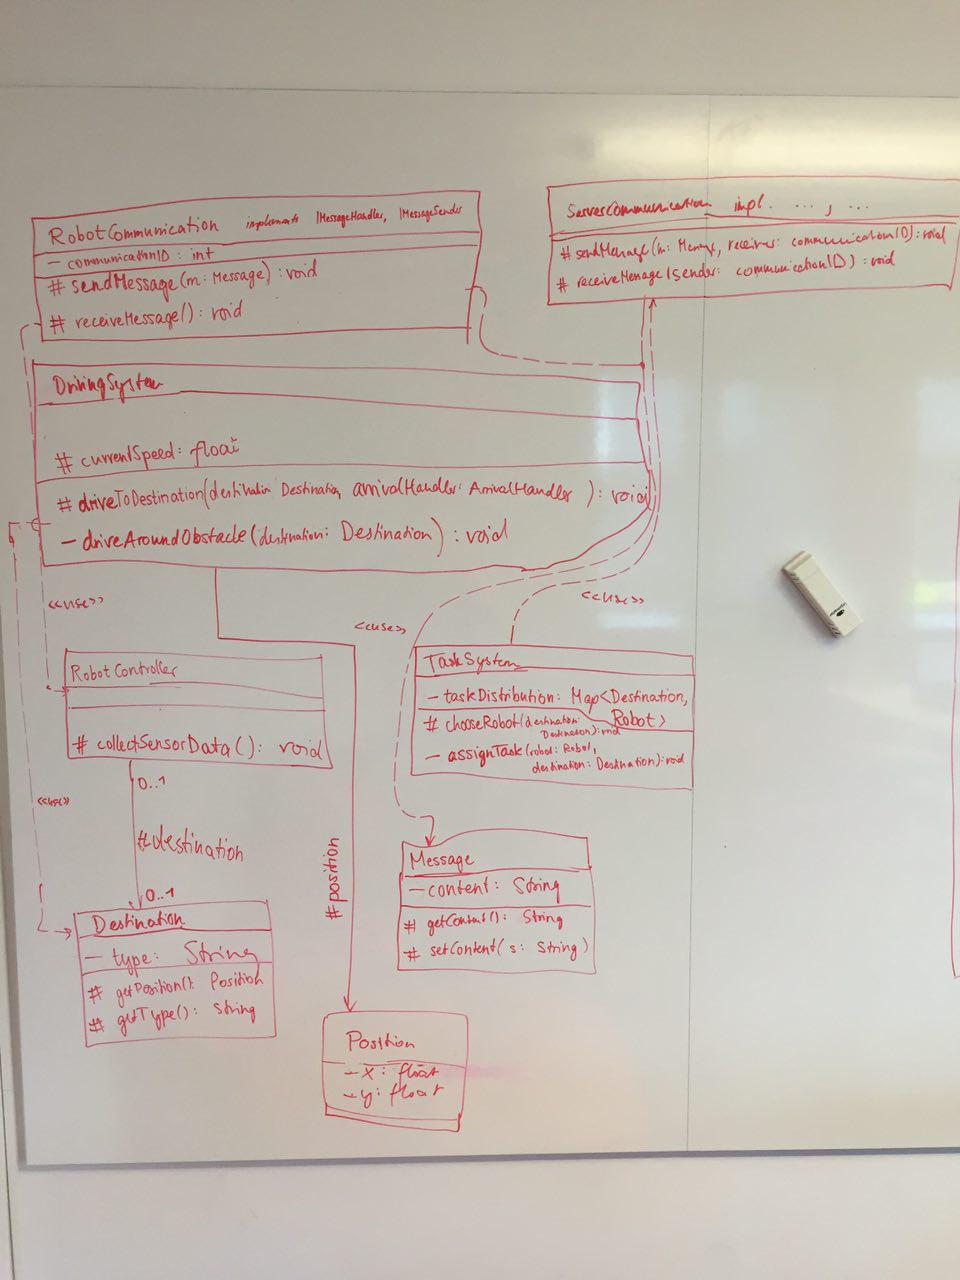 RobotCommunication implements IMessageHandler, IMessageSender
- communicationID : int
# sendMessage(m: Message) : void
# receiveMessage() : void
ServerCommunication impl. ..., ...
# sendMessage(m: Message, receiver: communicationID) : void
# receiveMessage(sender: communicationID) : void
DrivingSystem
# currentSpeed: float
# driveToDestination(destination: Destination, arrivalHandler: ArrivalHandler ) : void
- driveAroundObstacle(destination: Destination) : void
<<use>>
<<use>>
<<use>>
RobotController
# collectSensorData() : void
TaskSystem
- taskDistribution: Map<Destination,
Robot>
# chooseRobot(destination:
Destination): void
- assignTask(robot: Robot,
destination: Destination): void
0..1
<<use>>
#destination
#position
0..1
Message
- content: String
# getContent(): String
# setContent(s: String)
Destination
- type: String
# getPosition(): Position
# getType(): String
Position
- x: float
- y: float